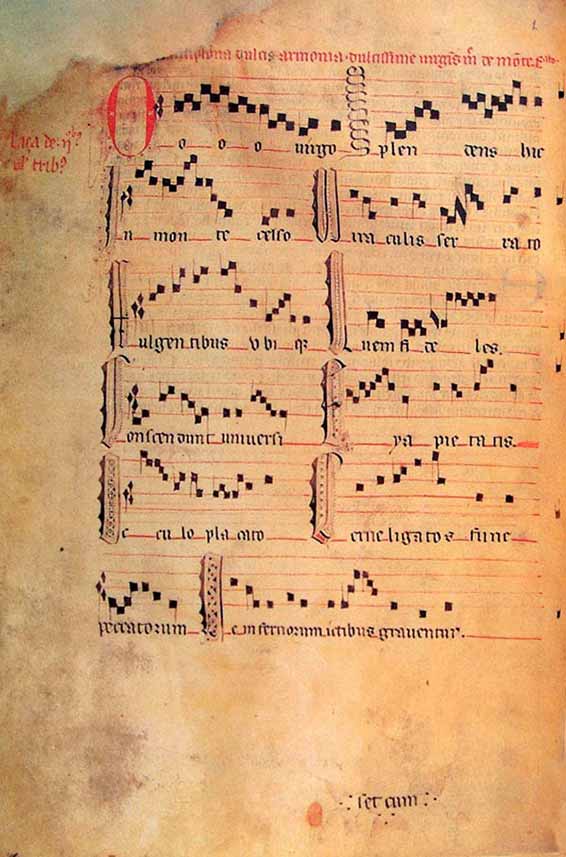 tiphona dulcis armonia · dulcissime uirgīs m̄ de mōte
caça de ij bꝰ
ul' tribꝰ
O o o o uirgo splen dens hic
In mon te celso Miraculis ser ra to
Fulgen tibus vbi qꝫ Quem fi de les.
Conscendunt universi Eya pie ta tis.
Oc cu lo pla cato Cerne ligatos fune
peccatorum Ne infernorum ictibus graventur.
set cum